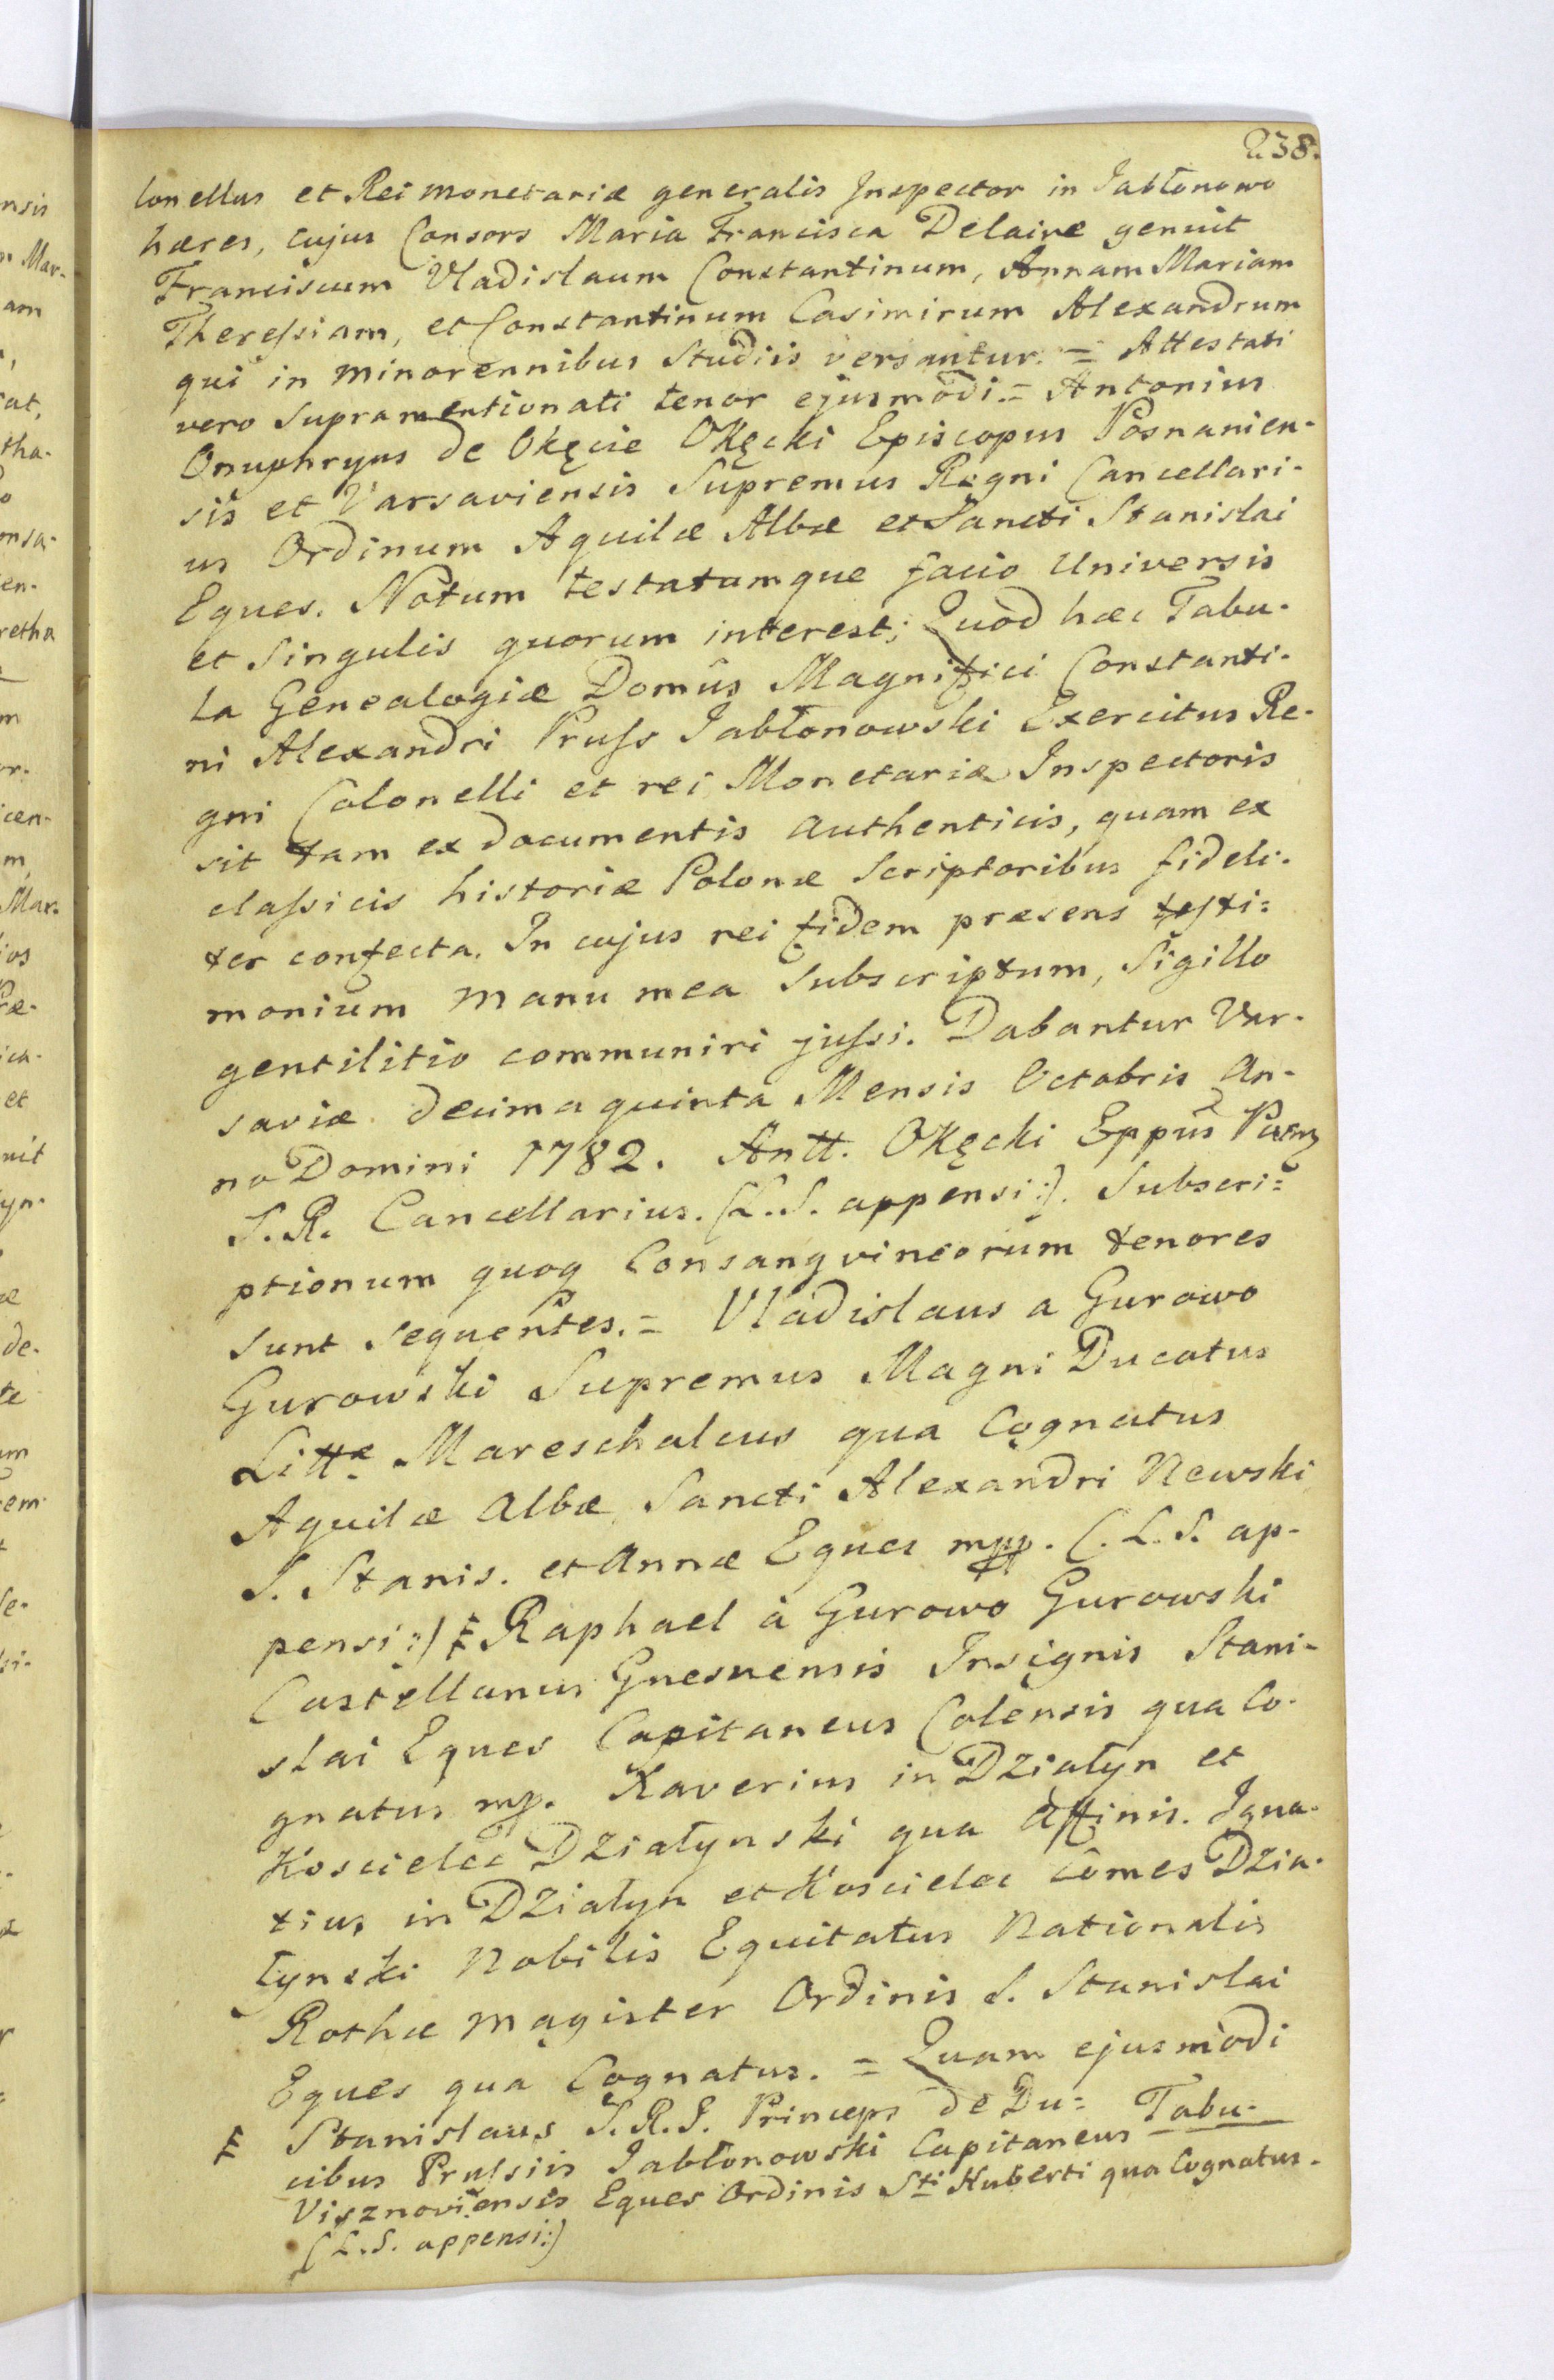 238.
lonellus et Rei monetariæ generalis Inspector in Jabłonowo
hæres, cujus Consors Maria Francisca Delaire genuit
Franciscum Vladislaum Constantinum, Annam Mariam
Theressiam, et Constantinum Casimirum Alexandrum
qui in minorennibus Studiis versantur. = Attestati
vero supramentionati tenor ejusmodi. = Antonius
Onuphryus de Okęcie Okęcki Episcopus Posnanien-
sis et Varsaviensis Supremus Regni Cancellari-
us Ordinum Aquilæ Albæ et Sancti Stanislai
Eques. Notum testatumque facio Universis
et Singulis quorum interest; Quod hæc Tabu-
la Genealogiæ Domûs Magnifici Constanti-
ni Alexandri Pruss Jabłonowski Exercitus Re-
gni Colonelli et rei Monetariæ Inspectoris
sit tam ex documentis authenticis, quam ex
classicis historiæ Polonæ Scriptoribus fideli-
ter confecta. In cujus rei fidem præsens testi=
monium manu mea subscriptum, Sigillo
gentilitio communiri jussi. Dabantur Var-
saviæ decima quinta Mensis Octobris an-
no Domini 1782. Antt. Okęcki Eppus Posn
S. R. Cancellarius. (L. S. appensi:). Subscri=
ptionum quoq Consangvineorum tenores
sunt sequentes. = Vladislaus a Gurowo
Gurowski Supremus Magni Ducatus
Littæ Mareschalcus qua Cognatus
Aquilæ albæ, Sancti Alexandri Newski
S. Stanis. et Annæ Eques mpp. (. L. S. ap-
pensi:) ŧ Raphael à Gurowo Gurowski
Castellanus Gnesnensis Insignis Stani-
slai Eques Capitaneus Colensis qua Co-
gnatus mp. Xaverius in Działyn et
Koscielec Działynski qua affinis. Igna-
tius in Działyn et Koscielec Comes Dzia-
łynski Nobilis Equitatus Nationalis
Rothæ Magister Ordinis S. Stanislai
Eques qua Cognatus. = Quam ejusmodi
Tabu-
ŧ Stanislaus S. R. I. Princeps de Du=
cibus Prussiis Jabłonowski Capitaneus
Visznoviensis Eques Ordinis Sti Huberti qua Cognatus.
(L. S. appensi:)